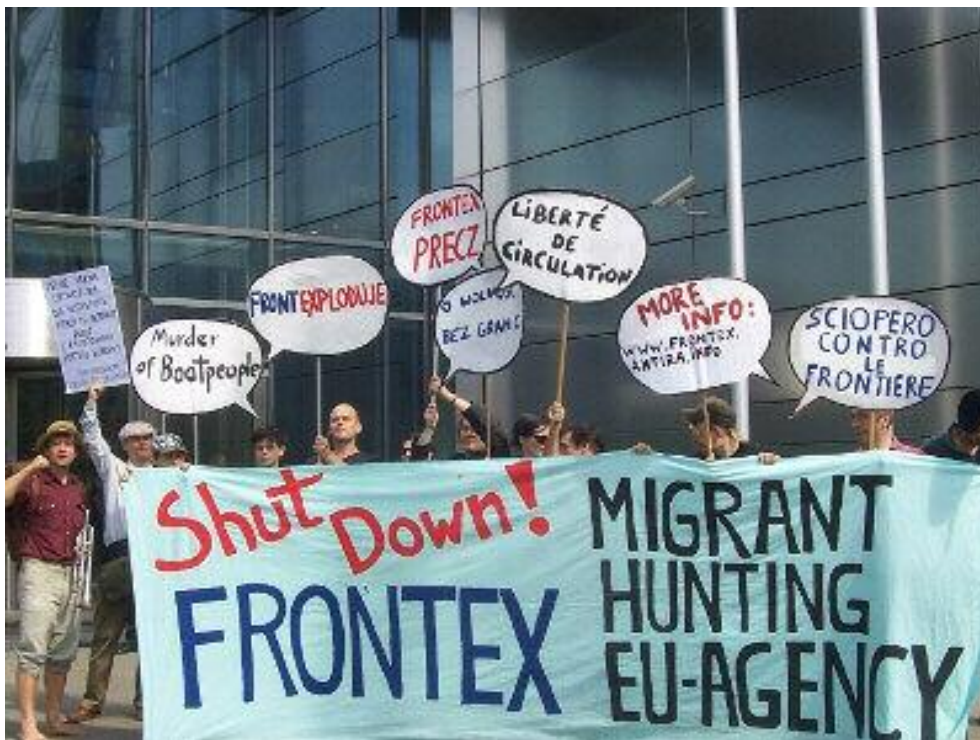 Murder
of Boatpeople!
FRONTEXPLODUJE
FRONTEX
PRECZ
BEZ GRANIC
LiBERTÉ
DE
CiRCULATiON
MORE
INFO:
WWW.FRONTEX.
ANTIRA.INFO
SCIOPERO
CONTRO
LE
FRONTIERE
Shut Down!
FRONTEX
MIGRANT
HUNTING
EU-AGENCY